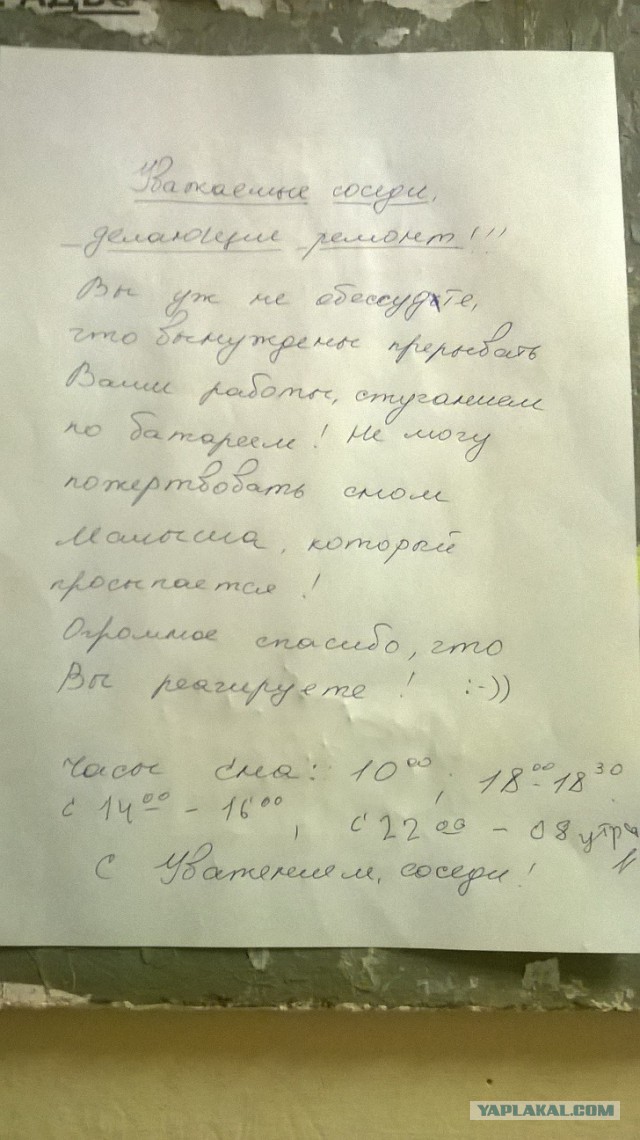 Уважаемые соседи,
делающие ремонт!!!
Вы уж не обессудьте,
что вынуждены прерывать
Ваши работы, стуганием
по батареем! Не могу
пожертвовать сном
Малыша, который
просыпается!
Огромное спасибо, что
Вы реагируете! :-))
Часы сна: 10⁰⁰; 18⁰⁰-18³⁰
с 14⁰⁰ - 16⁰⁰, с 22⁰⁰ - 08 утра
С Уважением, соседи!
YAPLAKAL.COM